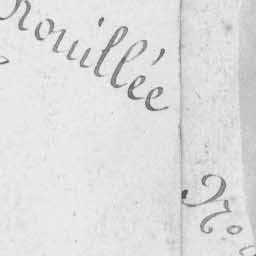 rouillée
No